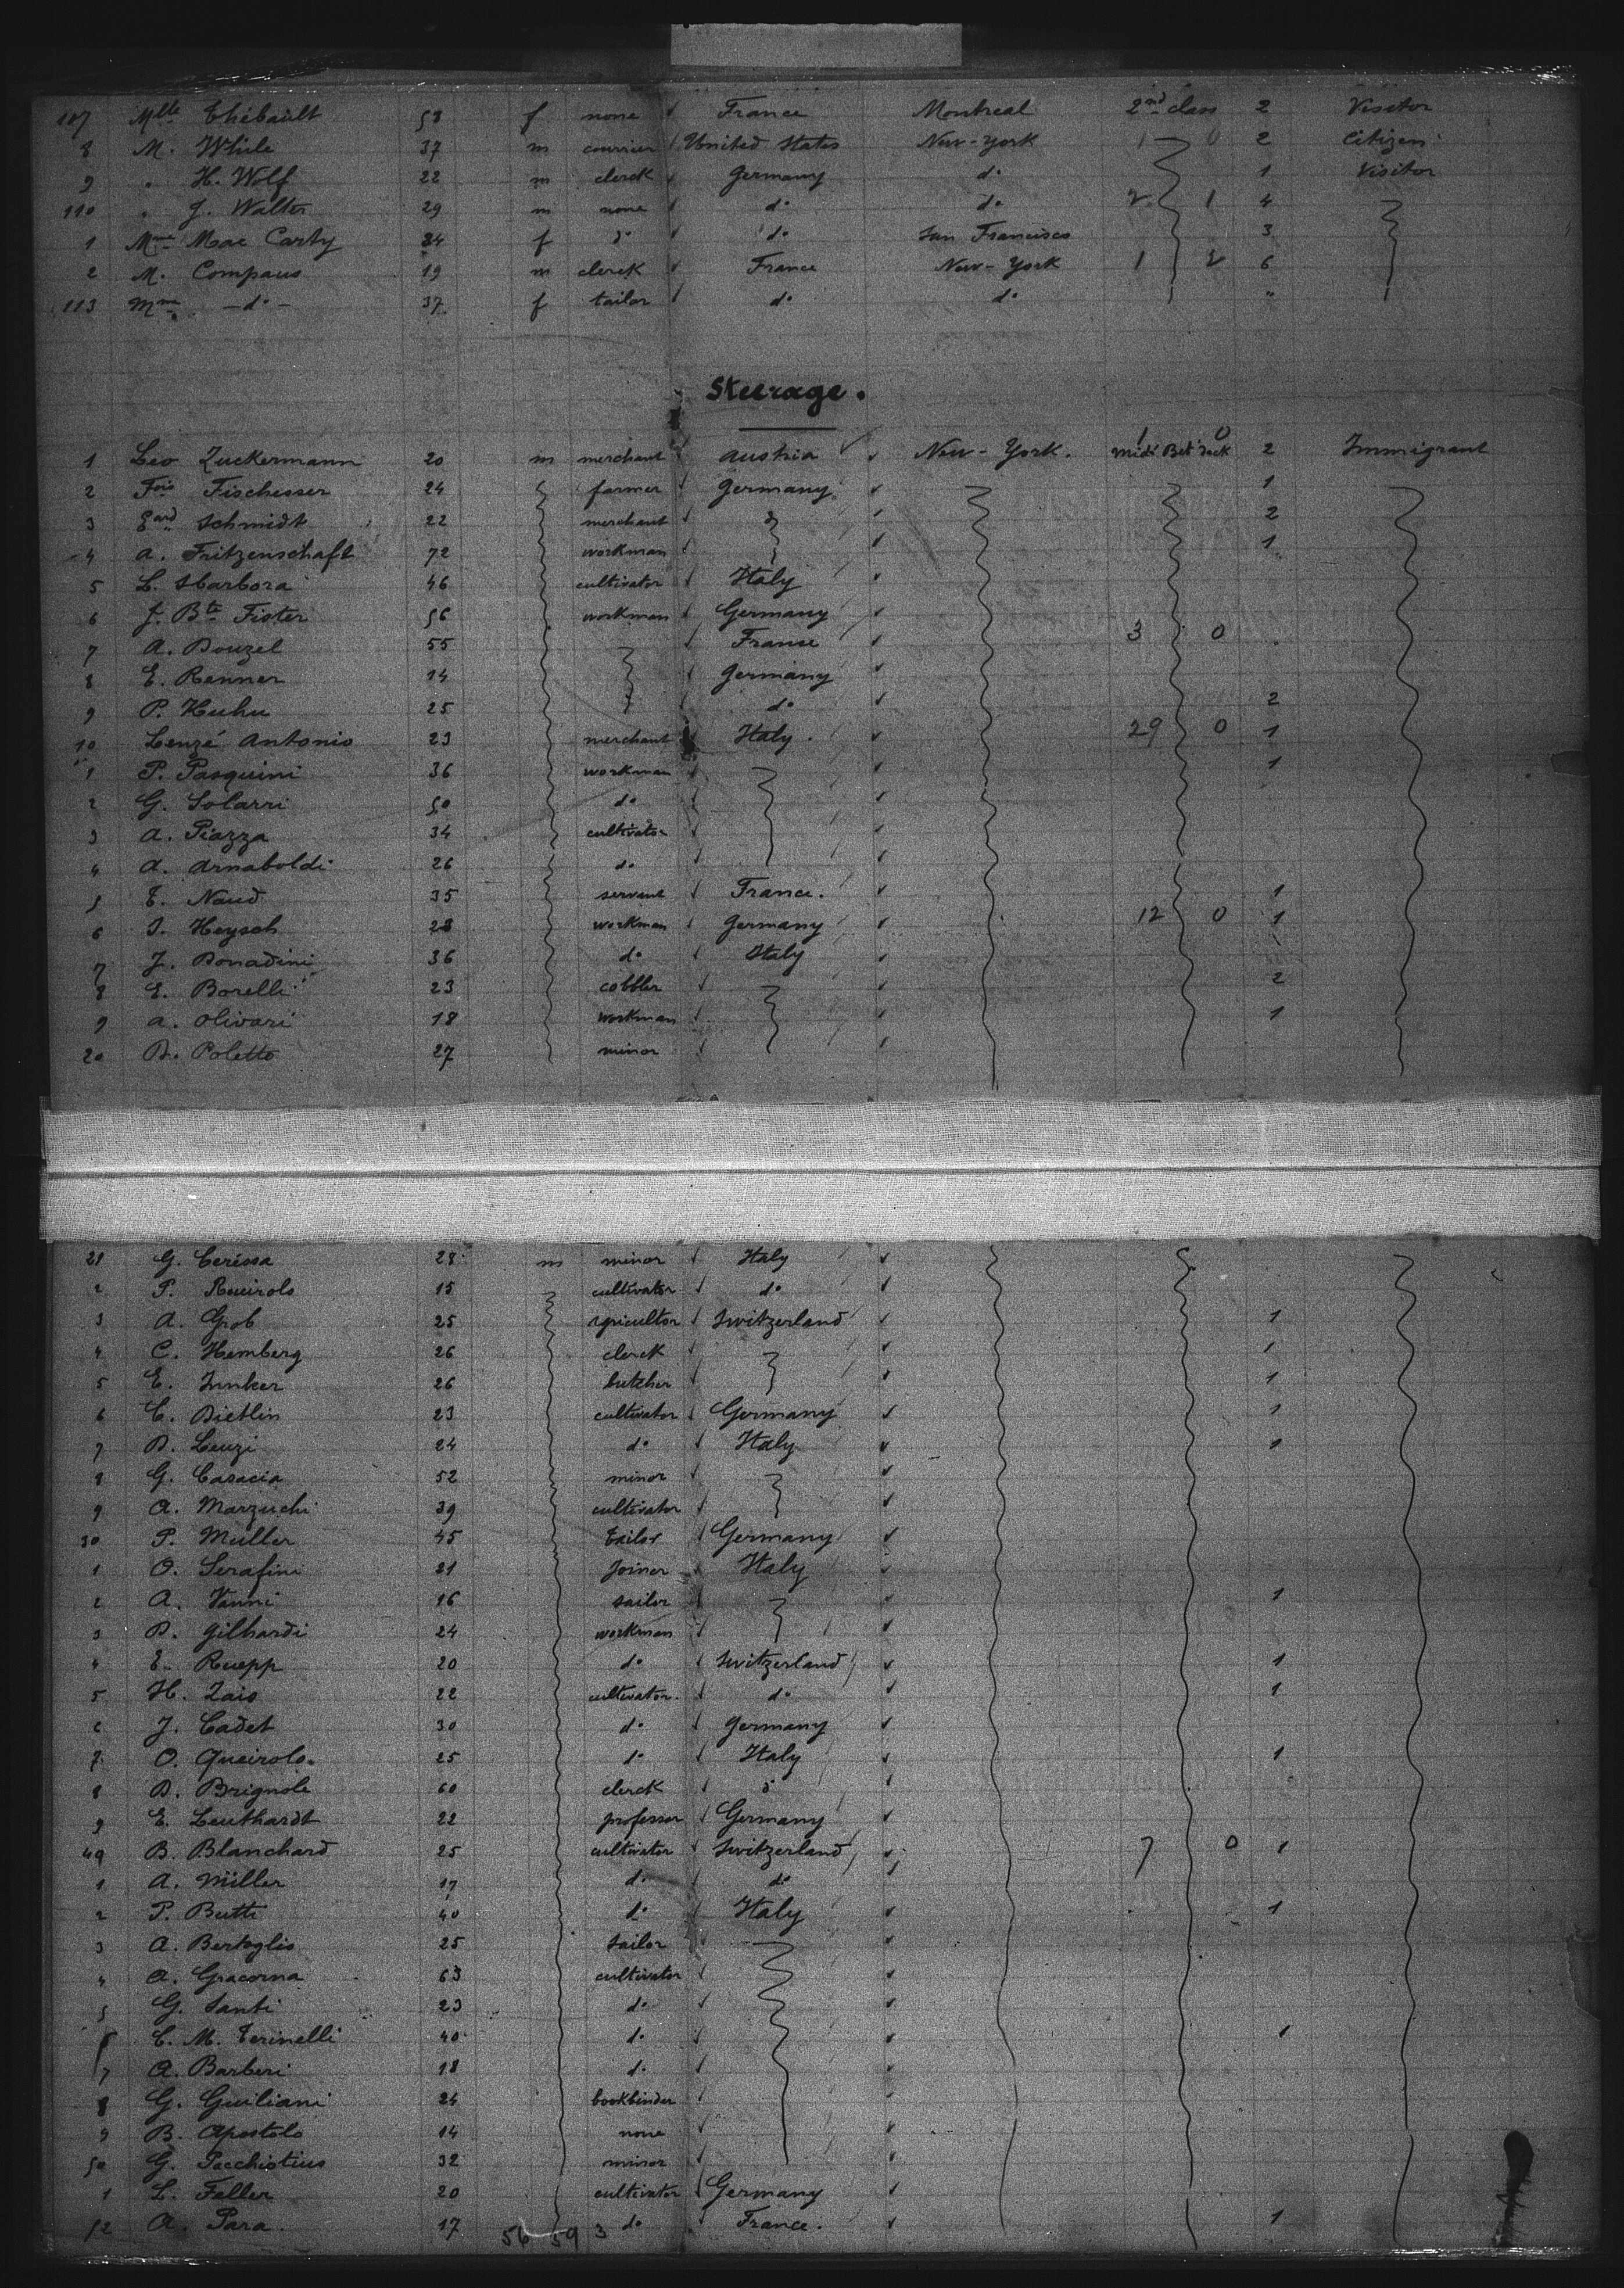 107 Mlle Thiébault 58 f none France Montreal 2nd class 2 Visitor
8 M. While 37 m courrier United States New-York 1 0 2 Citizen
9 " H. Wolf 22 m clerck Germany do 1 Visitor
110 " J. Walter 29 m none do do 2 1 4
1 Mme Mac Carty 24 f do do San Francisco 3
2 M. Compaus 19 m clerck France New-York 1 2 6
113 Mme -do- 37 f tailor do do "
Steerage.
1 0
1 Leo Zuckermann 20 m merchant Austria New-York. 2 Immigrant
2 Fois Fischesser 24 farmer Germany 1
3 Eard Schmidt 22 merchant 2
4 A. Fritzenschaft 72 workman 1
5 L. Sbarbora 46 cultivator Italy
6 J. Bte Fister 56 workman Germany
7 A. Douzel 55 France 3 0
8 E. Renner 14 Germany
9 P. Huhu 25 do 2
10 Lenzé Antonio 23 merchant Italy. 29 0 1
1 P. Pasquini 36 workman 1
2 G. Solarri 50 do
3 A. Piazza 34 cultivator
4 A. Arnaboldi 26 do
5 E. Naud 35 servant France. 1
6 J. Heysch 28 workman Germany 12 0 1
7 J. Bonadini 36 do Italy
8 E. Borelli 23 cobbler 2
9 A. Olivari 18 workman 1
20 B. Poletto 27 minor
21 G. Ceréssa 28 m minor Italy
2 P. 15 cultivator do
3 A. Grob 25 agricultor Switzerland 1
4 C. Hemberg 26 clerck 1
5 E. Junker 26 butcher 1
6 C. Dietlin 23 cultivator Germany 1
7 D. Leuzi 24 do Italy 1
8 G. Casacia 52 minor
9 A. Marzuchi 39 cultivator
30 P. Muller 45 tailor Germany
1 O. Serafini 21 Joiner Italy
2 A. Vanni 16 sailor 1
3 D. Gilhardi 24 workman
4 E. Ruepp 20 do Switzerland 1
5 H. Zais 22 cultivator. do 1
6 J. Cadet 30 do Germany
7 O. Queirolo. 25 do Italy 1
8 D. Brignole 60 clerck do
9 E. Leuthardt 22 professor Germany
40 B. Blanchard 25 cultivator Switzerland 7 0 1
1 A. Müller 17 do do
2 P. Butti 40 do Italy 1
3 A. Bertoglio 25 sailor
4 A. Giacorna 63 cultivator
5 G. Santi 23 do
6 C. M. Terinelli 40 do 1
7 A. Barberi 18 do
8 G. Guiliani 24 bookbinder
9 B. Apostolo 14 none
50 G. Pacchiotius 32 minor
1 L. Feller 20 cultivator Germany
52 A. Para. 17 do France. 1
56 59 3